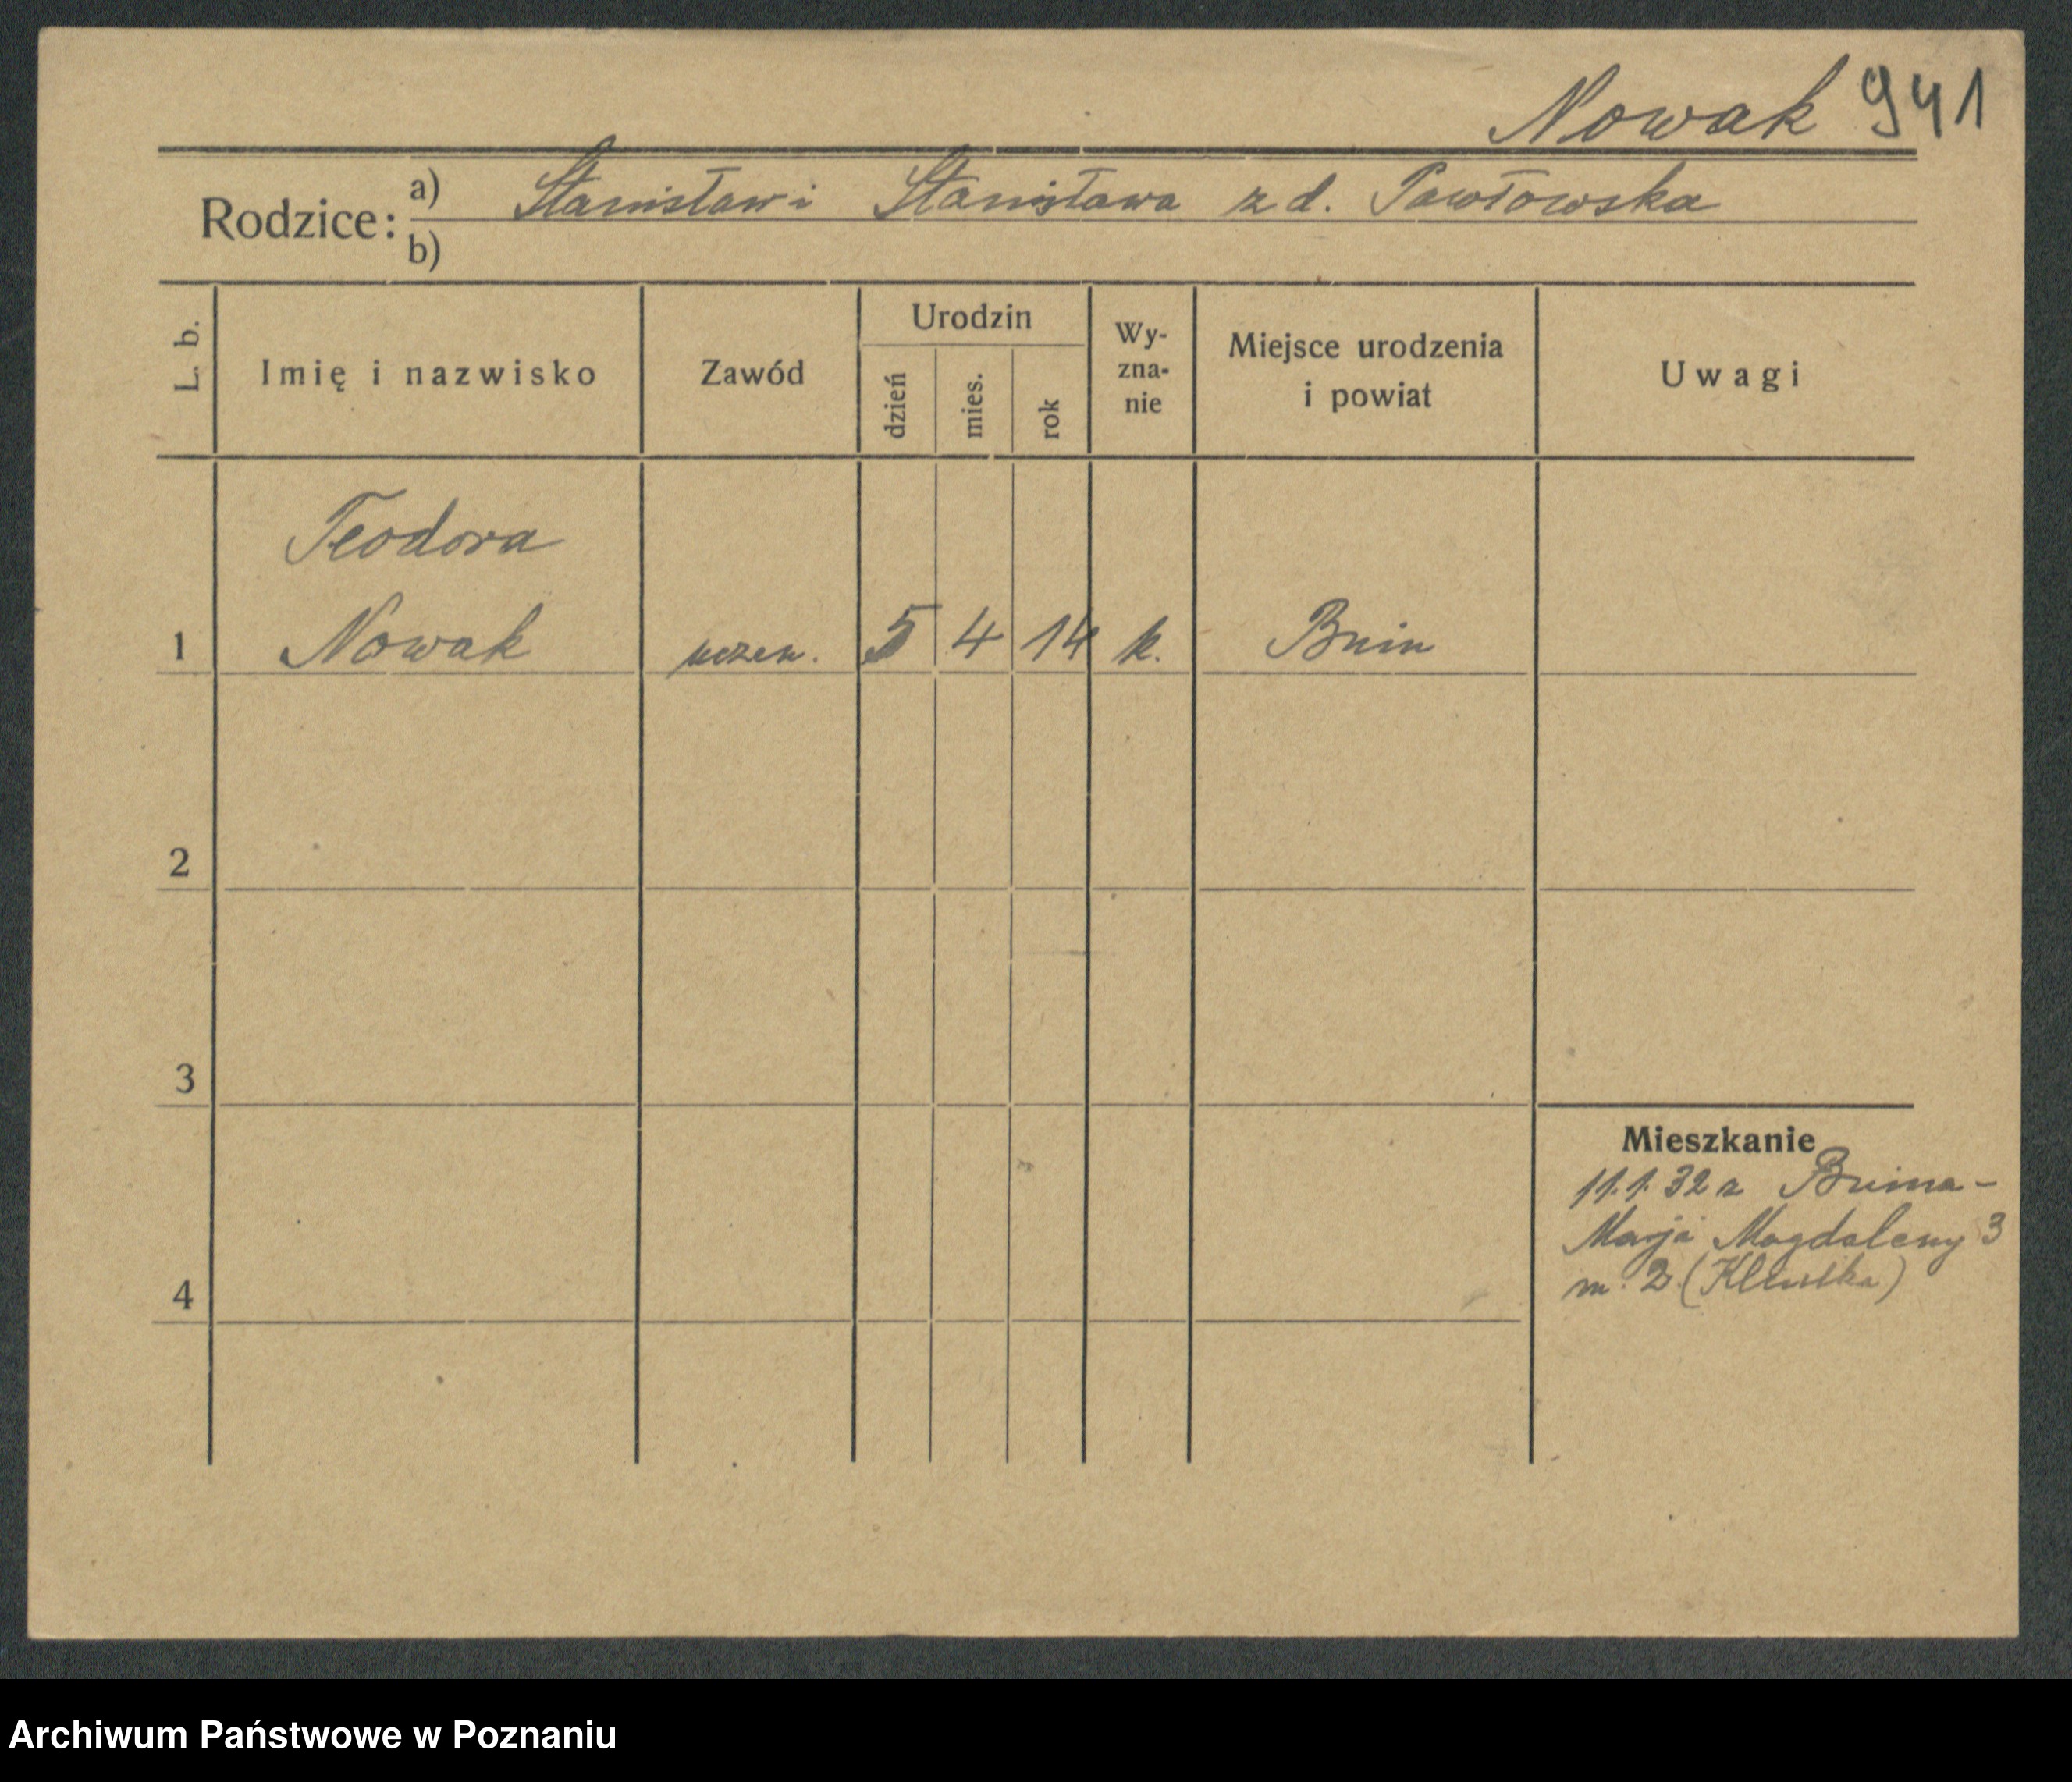 Nowak 941
Rodzice: a) Stanisław i Stanisława z d. Pawłowska
b)
L. b.
Imię i nazwisko
Zawód
Urodzin
dzień
mies.
rok
Wy-
zna-
nie
Miejsce urodzenia
i powiat
Uwagi
Teodora
1 Nowak uczen. 5 4 14 k. Bnin
2
3
4
Mieszkanie
11.1.32 z Bnina -
Magdaleny 3
m. 2
Archiwum Państwowe w Poznaniu